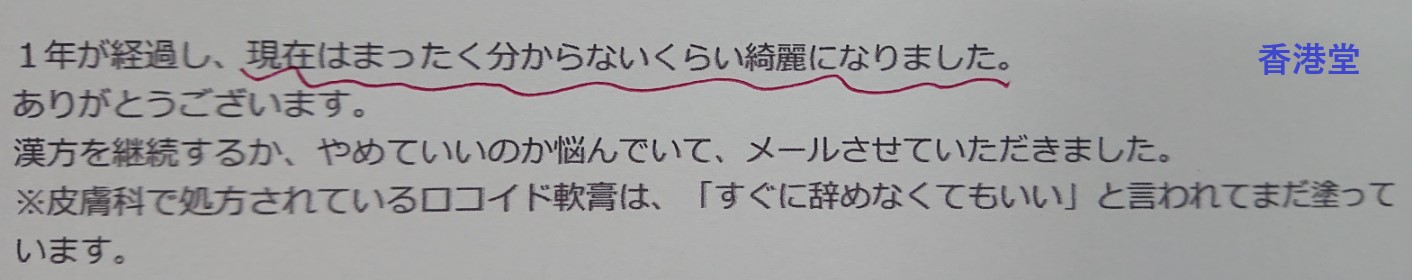 １年が経過し、現在はまったく分からないくらい綺麗になりました。
香港堂
ありがとうございます。
漢方を継続するか、やめていいのか悩んでいて、メールさせていただきました。
※皮膚科で処方されているロコイド軟膏は、「すぐに辞めなくてもいい」と言われてまだ塗って
います。